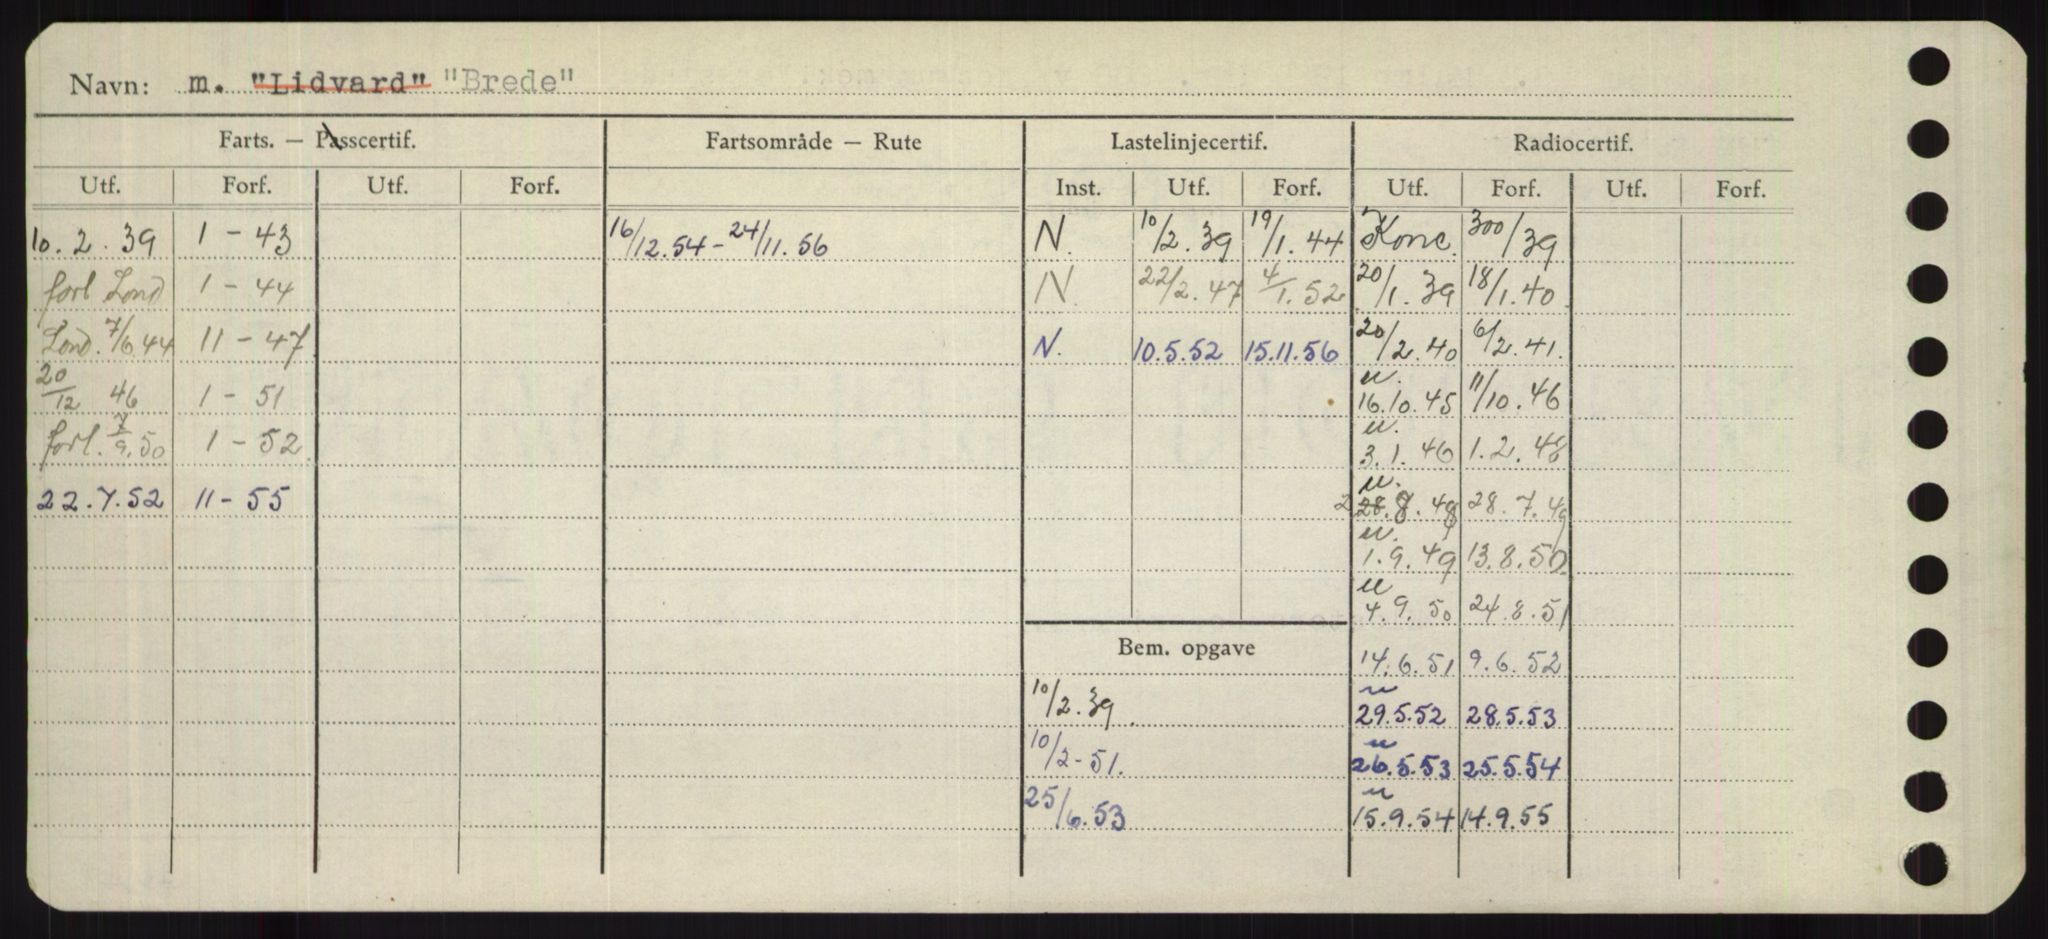 Navn: m. "Lidvard" "Brede"
Farts. — Passcertif. Fartsområde — Rute Lastelinjecertif. Radiocertif.
Utf. Forf. Utf. Forf. Inst. Utf. Forf. Utf. Forf. Utf. Forf.
10.2.39 1-43 16/12.54-24/11.56 N. 10/2.39 19/1.44 Konc. 300/39
forl Lond 1-44 N. 22/2.47 4/1.52 20/1.39 18/1.40
Lond. 7/6.44 11-47 N. 10.5.52 15.11.56 20/2.40 6/2.41.
20/12 46 1-51 u. 16.10.45 11/10.46
forl. 7/9.50 1-52 u. 3.1.46 1.2.48
22.7.52 11-55 u. 28.8.48 28.7.49
u. 1.9.49 13.8.50
u 4.9.50 24.8.51
Bem. opgave 14.6.51 9.6.52
10/2.39. u 29.5.52 28.5.53
10/2-51. u 26.5.53 25.5.54
25/6.53 u 15.9.54 14.9.55